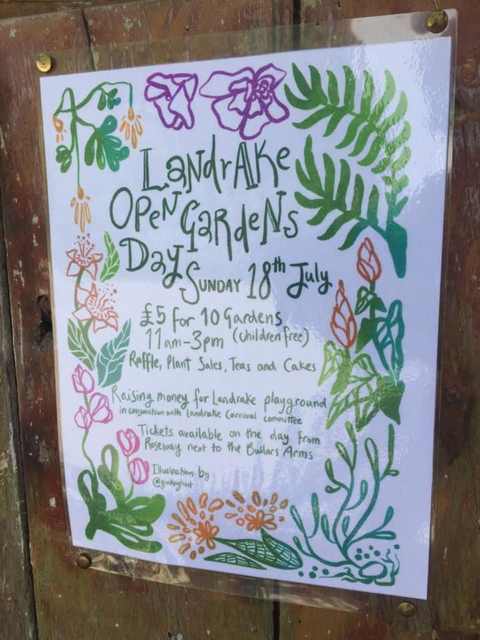 Landrake
Open Gardens
Day
Sunday 18th July
£5 for 10 Gardens
11am-3pm (Children free)
Raffle, Plant Sales, Teas and Cakes
Raising money for Landrake playground
in conjunction with Landrake Carnival committee
Tickets available on the day from
Roseway next to the Bullers Arms
Illustration by